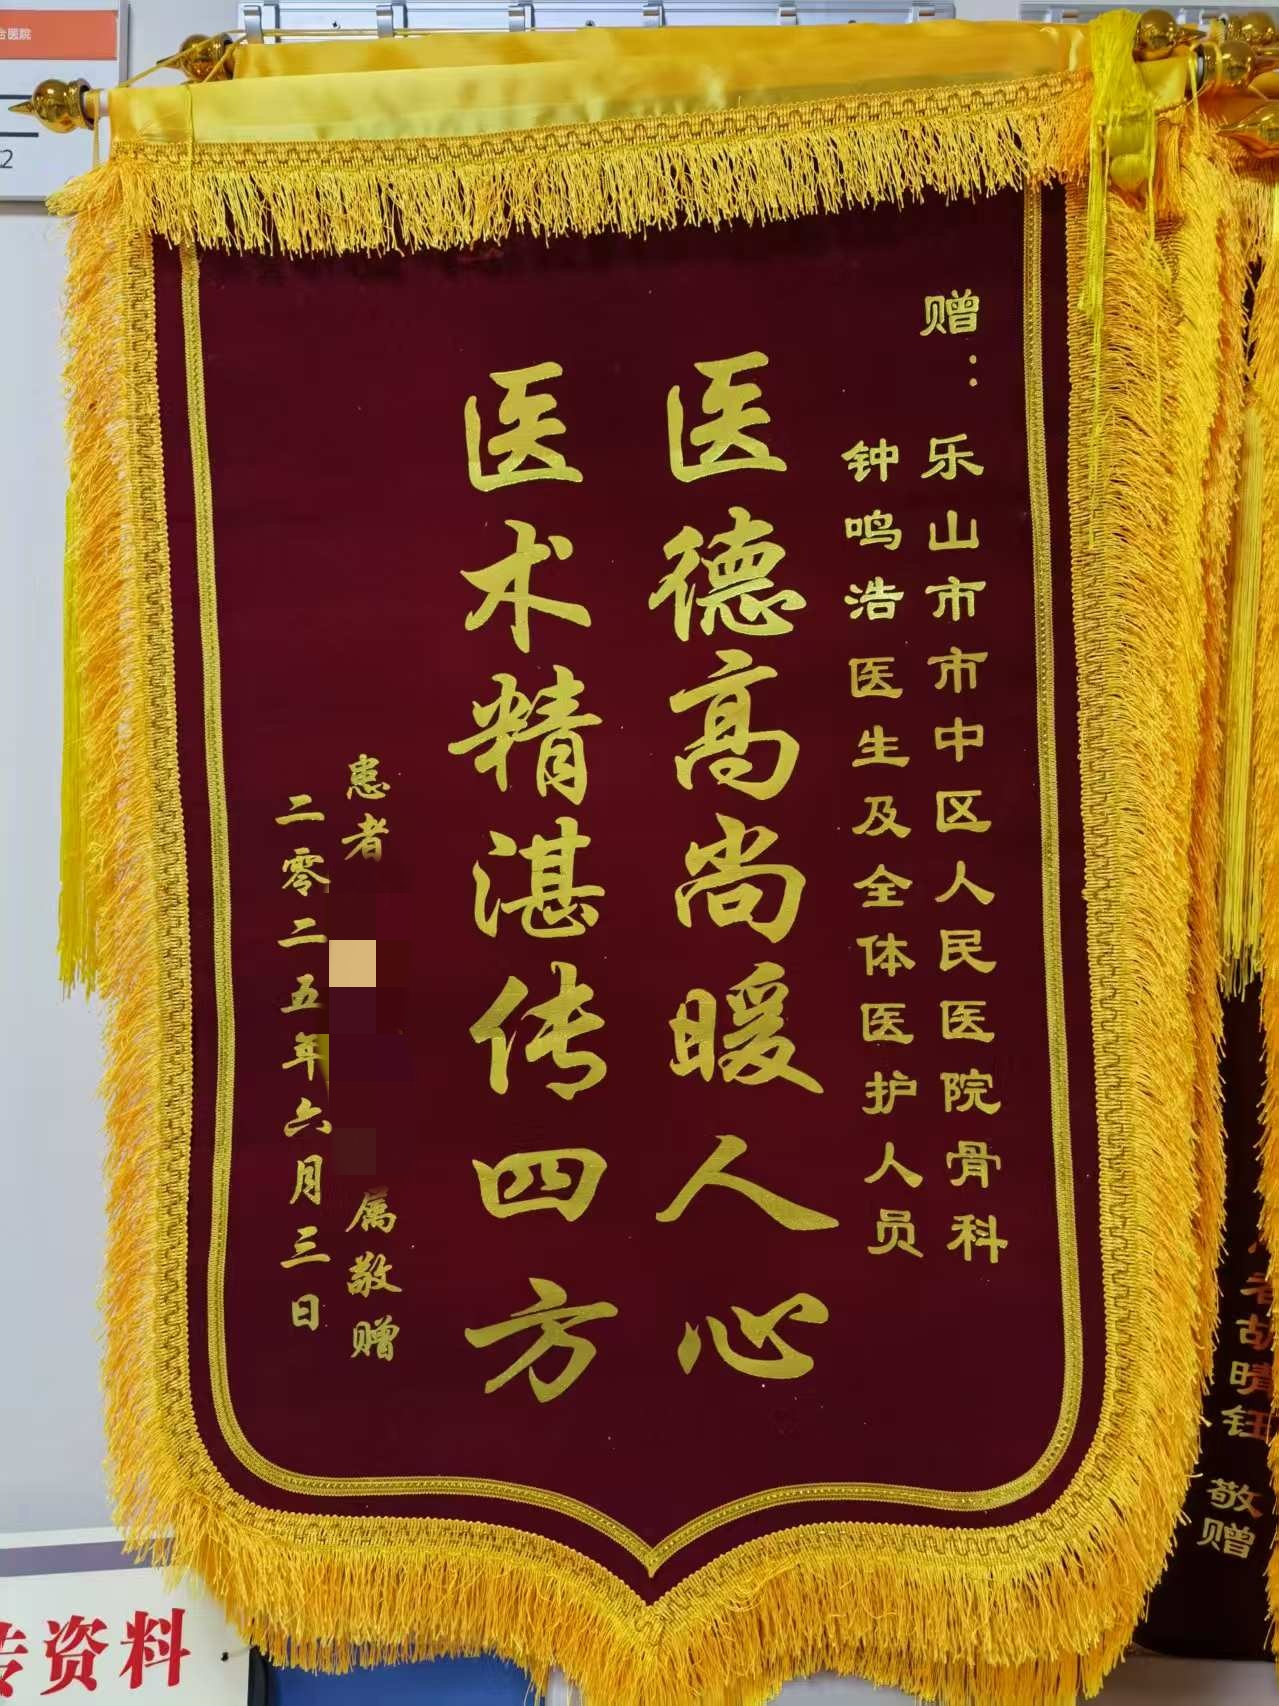 赠：
乐山市市中区人民医院骨科
钟鸣浩医生及全体医护人员
医德高尚暖人心
医术精湛传四方
患者
属敬赠
二零二五年六月三日
者胡晴钰 敬赠
资料
合医院
2